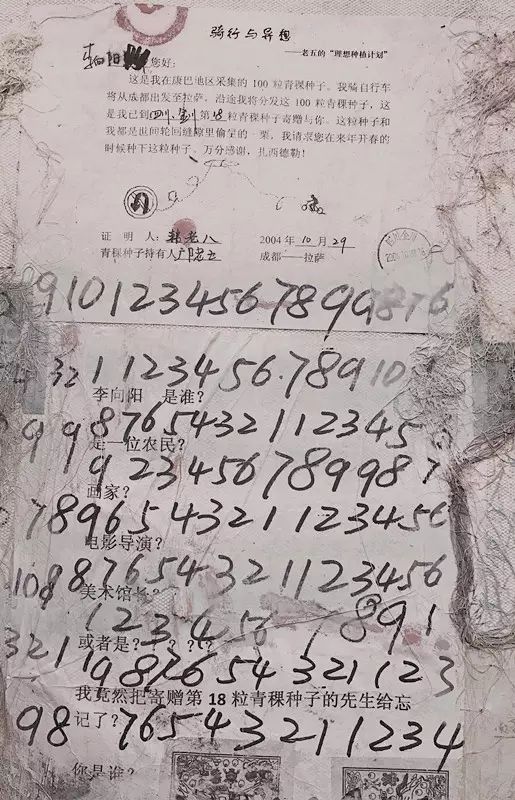 骑行与异想
——老五的“理想种植计划”
李向阳 您好：
这是我在康巴地区采集的 100 粒青稞种子。我骑自行车
将从成都出发至拉萨，沿途我将分发这 100 粒青稞种子，这
是我已到四川 金川 第 18 粒青稞种子寄赠与你。这粒种子和
我都是世间轮回缝隙里偷生的一粟，我请求您在来年开春的
时候种下这粒种子。万分感谢，扎西德勒！
证 明 人：韩老八 2004 年 10 月 29
青稞种子持有人 老五 成都——拉萨
91012345678998876
321 12345678910
李向阳 是谁？
998765432112345
是一位农民？
923456789987
画家？
7896543211123456
电影导演？
108876543211123456
美术馆长？
1234567891
或者是？？？？？
3211987654321123
我竟然把寄赠第 18 粒青稞种子的先生给忘
记了？
98765432111234
你是谁？